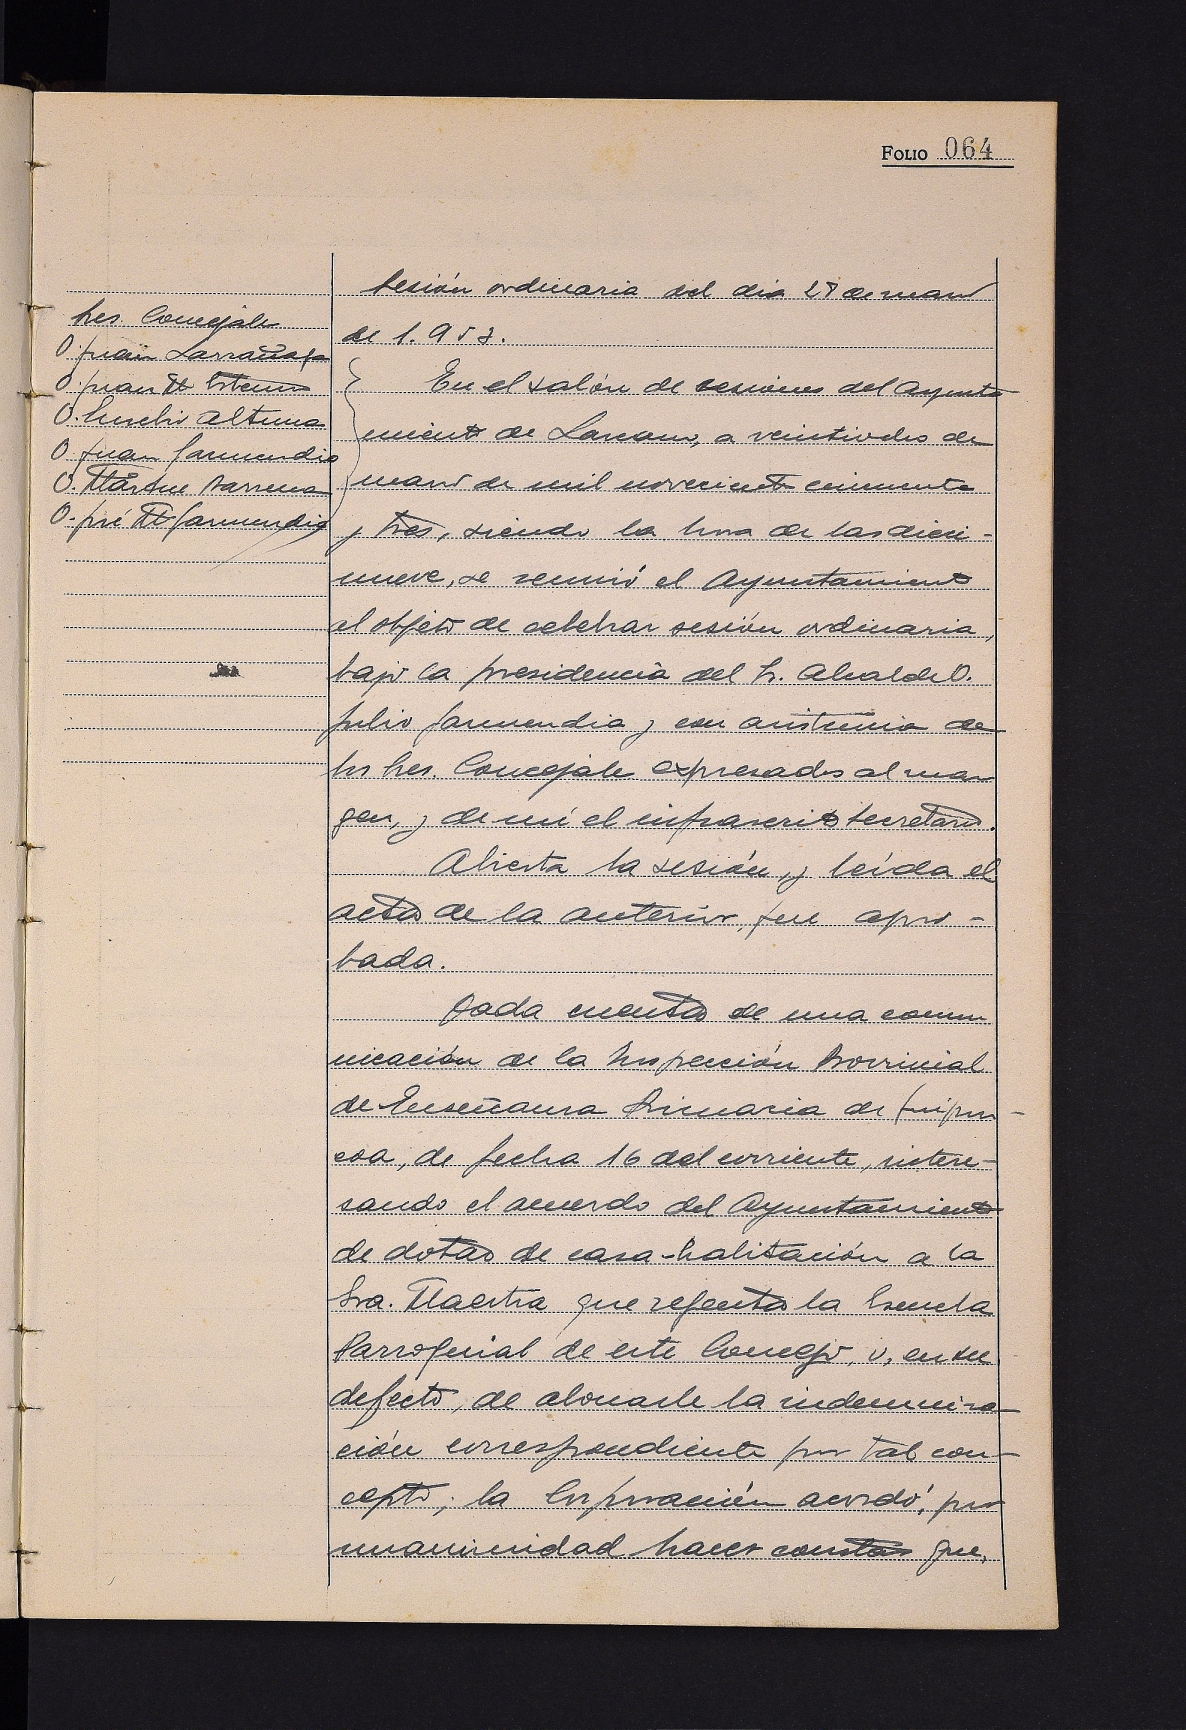 Folio 064
Sres. Concejales
D. Juan Larrañaga
D. Juan Mª
D. Eusebio Altuna
D. Juan Garmendia
D. Martin Barrena
D. José Mª Garmendia
Sesión ordinaria del dia 28 de marzo
de 1.953.
En el salón de sesiones del Ayunta
miento de Lazcano, a veintiocho de
marzo de mil novecientos cincuenta
y tres, siendo la hora de las dieci-
nueve, se reunió el Ayuntamiento
al objeto de celebrar sesión ordinaria,
bajo la presidencia del Sr. Alcalde D.
Julio Garmendia y con asistencia de
los Sres. Concejales expresados al mar
gen, y de mí el infrascrito Secretario.
Abierta la sesión, y leída el
acta de la anterior, fue apro-
bada.
Dada cuenta de una comu
nicación de la Inspección Provincial
de Enseñanza Primaria de Guipuz-
coa, de fecha 16 del corriente, intere-
sando el acuerdo del Ayuntamiento
de dotar de casa-habitación a la
Sra. Maestra que regenta la Escuela
Parroquial de este Concejo, o, en su
defecto, de abonarle la indemniza-
ción correspondiente por tal con-
cepto; la Corporación acordó, por
unanimidad hacer constar que,